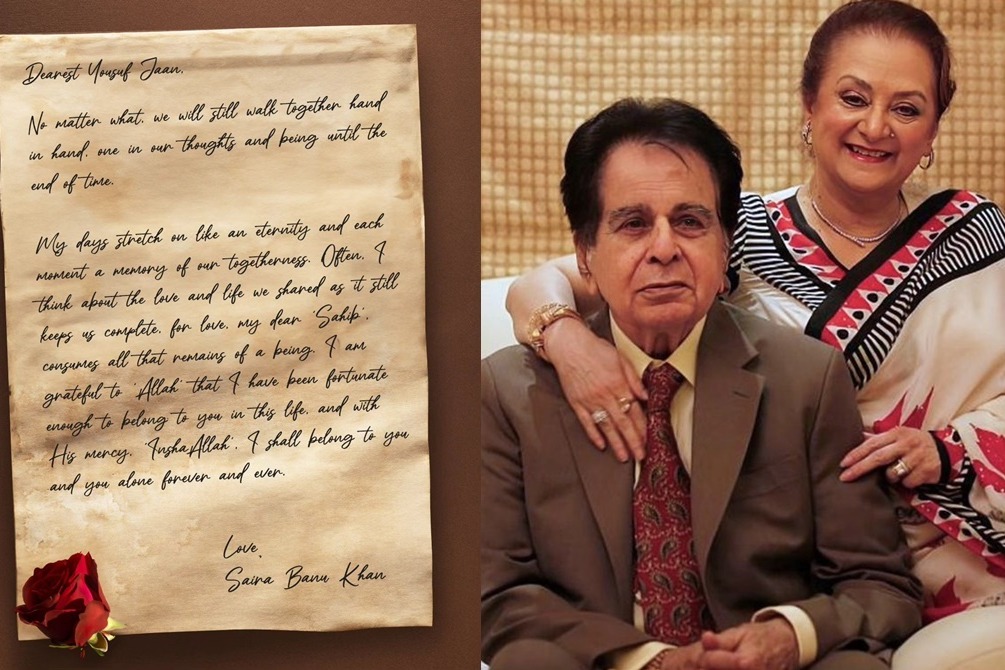 Dearest Yousuf Jaan,
No matter what, we will still walk together hand
in hand, one in our thoughts and being until the
end of time.
My days stretch on like an eternity and each
moment a memory of our togetherness. Often, I
think about the love and life we shared as it still
keeps us complete, for love, my dear 'Sahib',
consumes all that remains of a being. I am
grateful to 'Allah' that I have been fortunate
enough to belong to you in this life, and with
His mercy, 'InshaAllah', I shall belong to you
and you alone forever and ever.
Love,
Saira Banu Khan